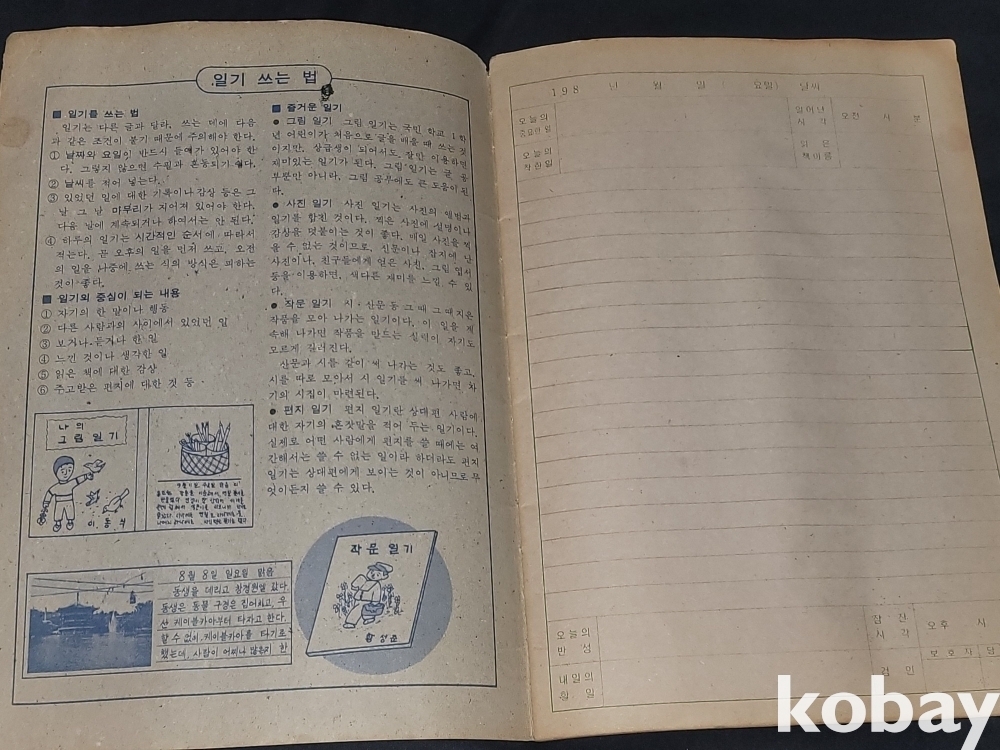 일기 쓰는 법
■ 일기를 쓰는 법
일기는 다른 글과 달라, 쓰는 데에 다음
과 같은 조건이 붙기 때문에 주의해야 한다.
① 날짜와 요일이 반드시 들어가 있어야 한
다. 그렇지 않으면 수필과 혼동되기 쉽다.
② 날씨를 적어 넣는다.
③ 있었던 일에 대한 기록이나 감상 등은 그
날 그 날 마무리가 지어져 있어야 한다.
다음 날에 계속되거나 하여서는 안 된다.
④ 하루의 일기는 시간적인 순서에 따라서
적는다. 곧 오후의 일을 먼저 쓰고, 오전
의 일을 나중에 쓰는 식의 방식은 피하는
것이 좋다.
■ 일기의 중심이 되는 내용
① 자기의 한 말이나 행동
② 다른 사람과의 사이에서 있었던 일
③ 보거나 듣거나 한 일
④ 느낀 것이나 생각한 일
⑤ 읽은 책에 대한 감상
⑥ 주고받은 편지에 대한 것 등
나의
그림 일기
이 동 식
8월 8일 일요일 맑음
동생을 데리고 창경원엘 갔다.
동생은 동물 구경은 집어치고, 우
선 케이블카아부터 타자고 한다.
할 수 없이 케이블카아를 타기로
했는데, 사람이 어찌나 많은지 한
■ 즐거운 일기
● 그림 일기 그림 일기는 국민 학교 1학
년 어린이가 처음으로 글을 배울 때 쓰는 것
이지만, 상급생이 되어서도 잘만 이용하면
재미있는 일기가 된다. 그림 일기는 글 공
부뿐만 아니라, 그림 공부에도 큰 도움이 된
다.
● 사진 일기 사진 일기는 사진의 앨범과
일기를 합친 것이다. 찍은 사진에 설명이나
감상을 덧붙이는 것이 좋다. 매일 사진을 찍
을 수 없는 것이므로, 신문이나 잡지에 난
사진이나, 친구들에게 얻은 사진, 그림 엽서
등을 이용하면, 색다른 재미를 느낄 수 있
다.
● 작문 일기 시·산문 등 그 때 그 때 지은
작품을 모아 나가는 일기이다. 이 일을 계
속해 나가면 작품을 만드는 실력이 자기도
모르게 길러진다.
산문과 시를 같이 써 나가는 것도 좋고,
시를 따로 모아서 시 일기를 써 나가면 차
기의 시집이 마련된다.
● 편지 일기 편지 일기란 상대편 사람에
대한 자기의 혼잣말을 적어 두는 일기이다.
실제로 어떤 사람에게 편지를 쓸 때에는 여
간해서는 쓸 수 없는 일이라 하더라도 편지
일기는 상대편에게 보이는 것이 아니므로 무
엇이든지 쓸 수 있다.
작문 일기
황 성 준
198 년 월 일 ( 요일) 날씨
오늘의
중요한 일
일어난
시 각
오전 시 분
오늘의
착한일
읽은
책이름
오늘의
반 성
잠 잔
시 각
오후 시
내일의
할 일
검 인
보 호 자 담
kobay